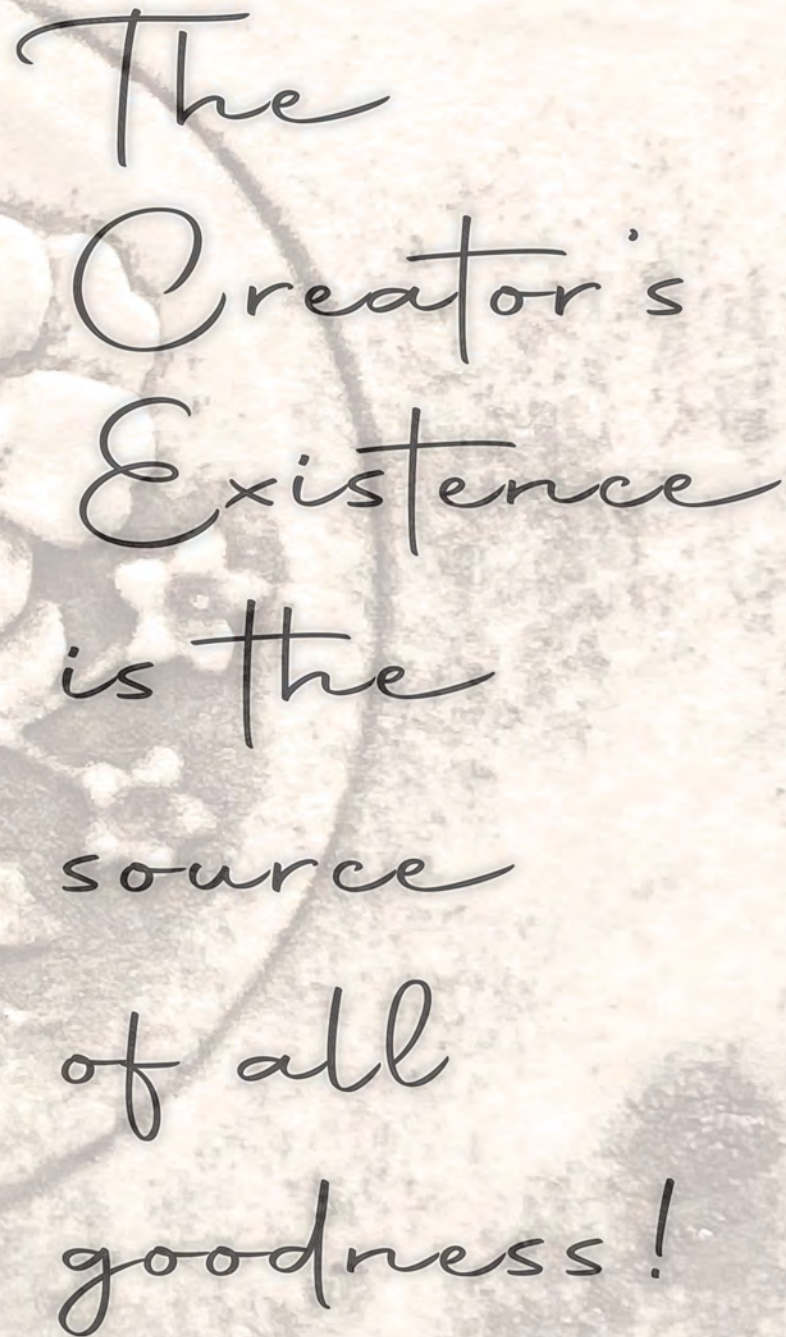 The
Creator's
Existence
is the
source
of all
goodness!